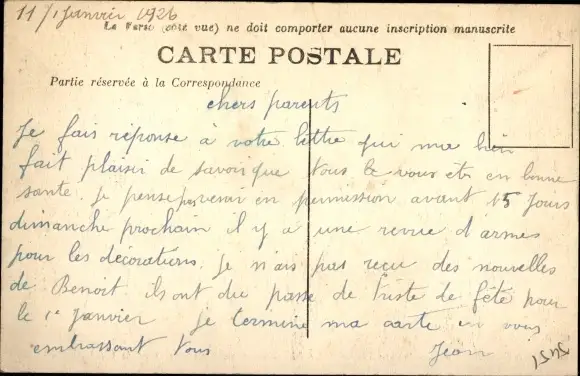 11/1 Janvier 1926
Le Verso (côté vue) ne doit comporter aucune inscription manuscrite
CARTE POSTALE
Partie réservée à la Correspondance
chers parents
Je fais réponse à votre lettre qui ma bien
fait plaisir de savoir que vous êtes en bonne
sante. Je pense venir en permission avant 15 Jours
dimanche prochain il y a une revue d'armes
pour les décorations. Je n'ais pas reçu des nouvelles
de Benoit, ils ont du passe de triste de fête pour
le 1er Janvier Je termine ma carte en vous
embrassant tous Jean